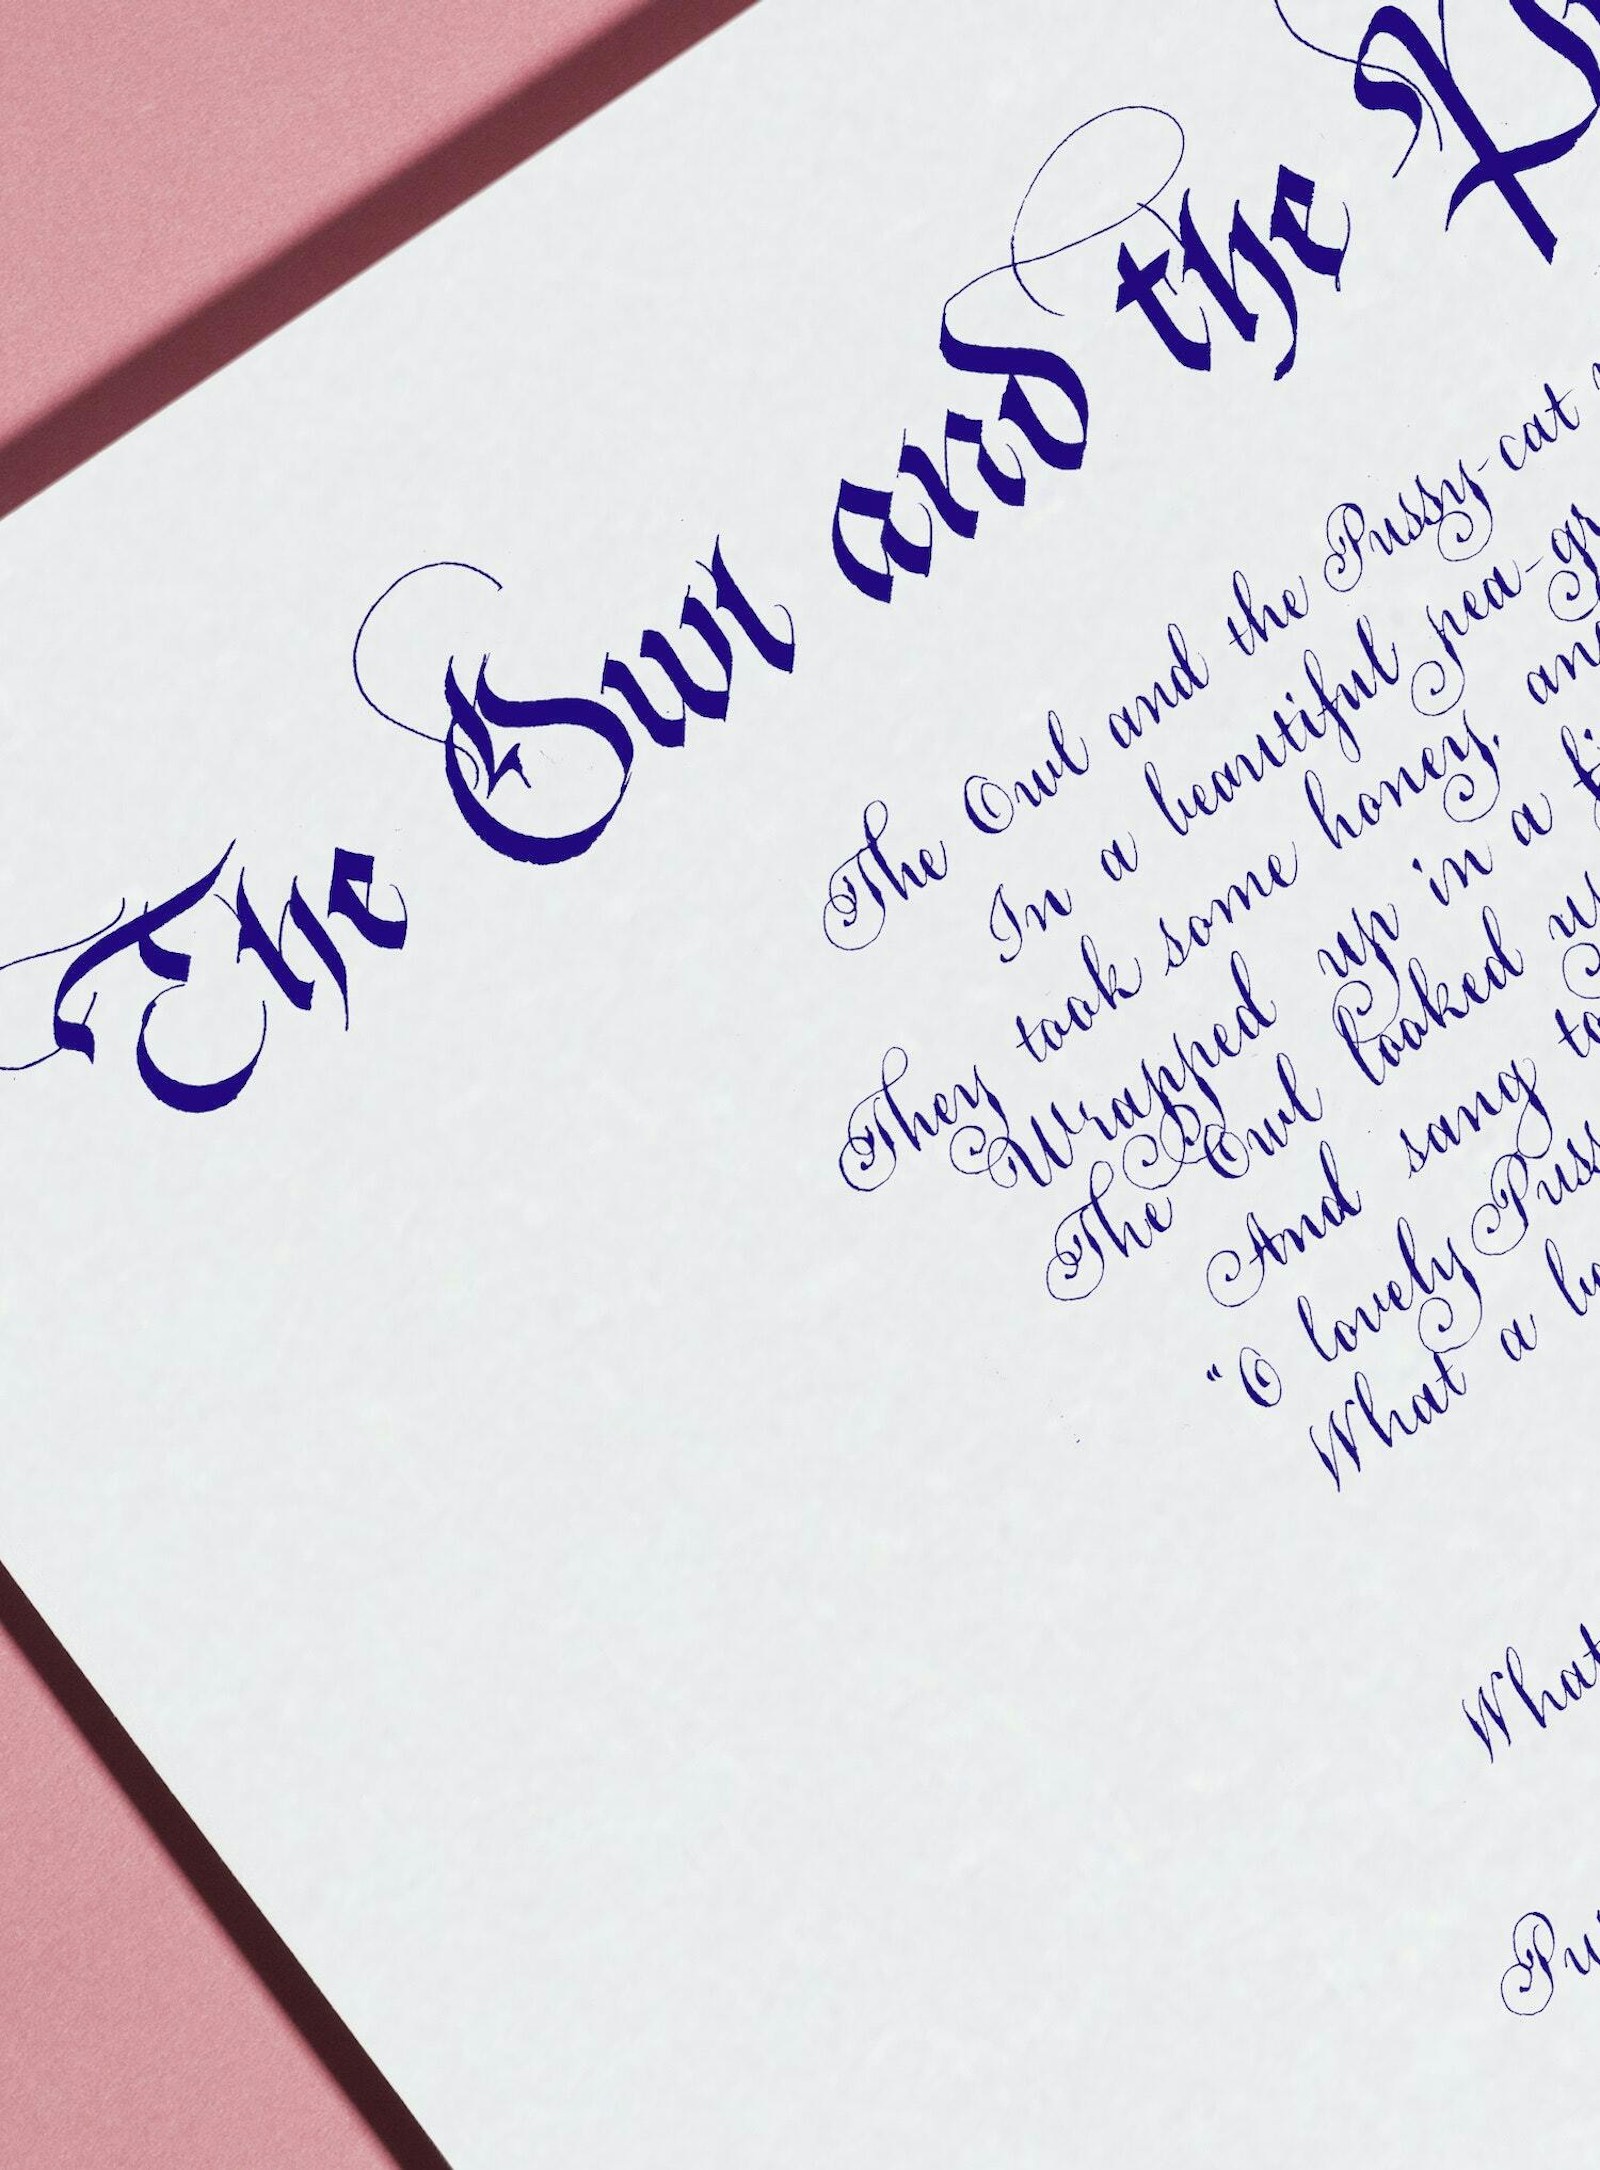 The Owl and the
The Owl and the Pussy-cat
In a beautiful pea-
They took some honey, and
Wrapped up in a
The Owl looked
And sang
"O lovely
What a
What